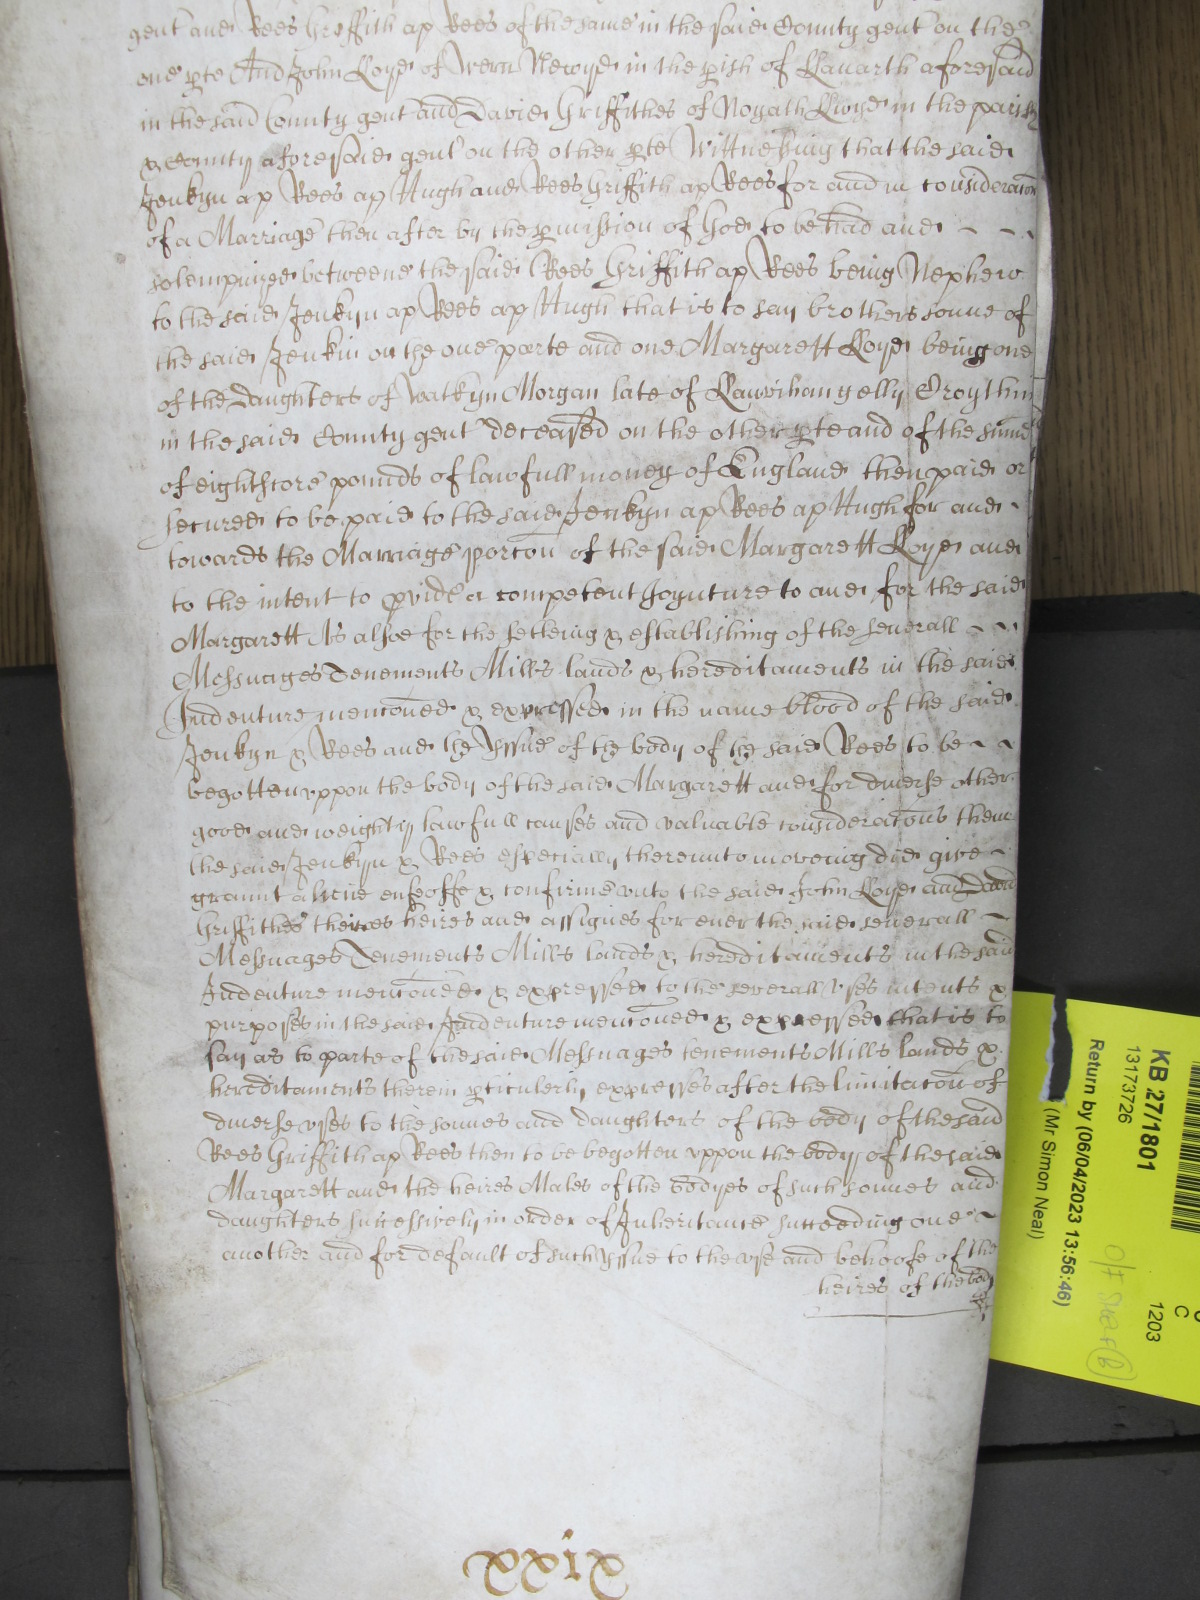 gent and Rees Griffith ap Rees of the same in the said County gent on the
one pte And John Lloyd of Wern Newyd in the pish of Llanarth aforesaid
in the said County gent and David Griffithes of Noyath Llwyd in the parish
& County aforesaid gent on the other pte Wittnessing that the said
Jenkyn ap Rees ap Hugh and Rees Griffith ap Rees for and in consideracon
of a Marriage then after by the pmission of God to be had and
solempnized betweene the said Rees Griffith ap Rees being Nephew
to the said Jenkyn ap Rees ap Hugh that is to say brothers sonne of
the said Jenkin on the one parte and one Margarett Lloyd being one
of the Daughters of Watkyn Morgan late of Llanvihangelly Croythin
in the said County gent deceased on the other pte and of the summe
of eightscore pounds of lawfull money of England then paid or
secured to be paid to the said Jenkyn ap Rees ap Hugh for and
towards the Marriage porcon of the said Margarett Lloyd and
to the intent to pvide a competent Joynture to and for the said
Margarett As alsoe for the setleing & establishing of the severall
Messuages Tenements Mills lands & hereditaments in the said
Indenture menconed & expressed in the name blood of the said
Jenkyn & Rees and the Yssue of the body of the said Rees to be
begotten vppon the body of the said Margarett and for diverse other
good and weighty lawfull causes and valuable consideracons them
the said Jenkyn & Rees especially therunto moveing did give
graunt aliene enfeoffe & confirme vnto the said John Lloyd and David
Griffithes heires and assignes for ever the said severall
Messuages Tenements Mills lands & hereditaments in the said
Indenture menconed & expressed to the severall vses intents &
purposes in the said Indenture menconed & expressed that is to
say as to parte of the said Messuages tenements Mills lands &
hereditaments therein pticulerly expresses after the limitacon of
diverse vses to the sonnes and daughters of the body of the said
Rees Griffith ap Rees then to be begotten vppon the body of the said
Margarett and the heires Males of the bodyes of such sonnes and
daughters successively in order of Inheritance succeeding one
another and for default of such yssue to the vse and behoofe of the
heires of the body
xixx
KB 27/1801
13173726
Return by (06/04/2023 13:56:46)
(Mr Simon Neal)
C
1203